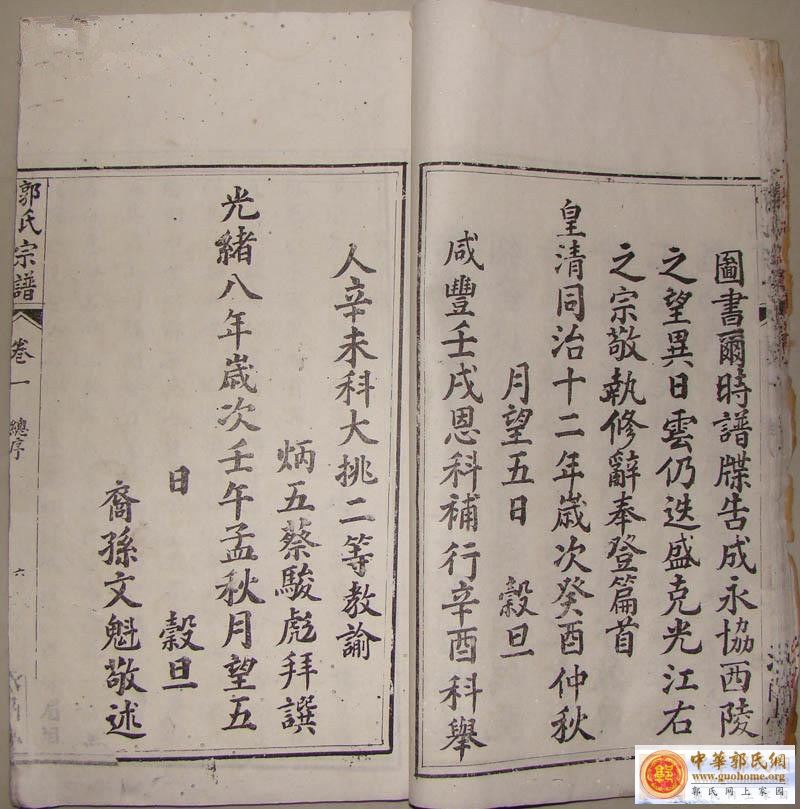 圖書爾時譜牒告成永協西陵
之望異日雲仍迭盛克光江右
之宗敬執修辭奉登篇首
皇清同治十二年歲次癸酉仲秋
月望五日 穀旦
咸豐壬戌恩科補行辛酉科舉
人辛未科大挑二等教諭
炳五蔡駿彪拜譔
光緒八年歲次壬午孟秋月望五
日 穀旦
裔孫文魁敬述
郭氏宗譜
卷一 總序
六
中華郭氏網
www.guohome.org
郭氏网上家园